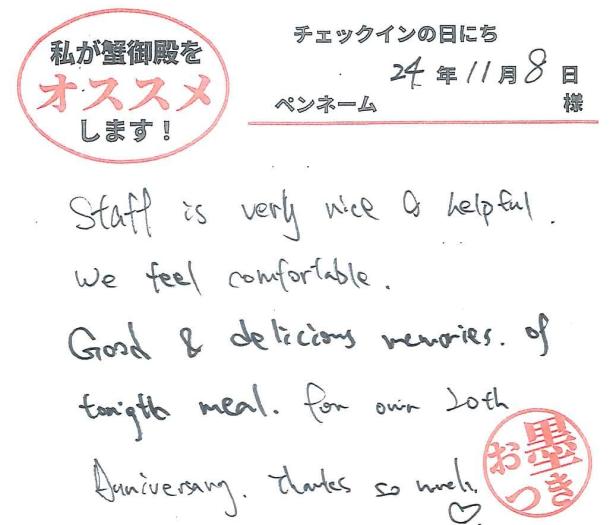 私が蟹御殿を
オススメ
します!
チェックインの日にち
24年11月8日
ペンネーム 様
Staff is very nice & helpful.
We feel comfortable.
Good & delicious memories. of
tonigth meal. for own 20th
Anniversary. thanks so much.
お墨
つき